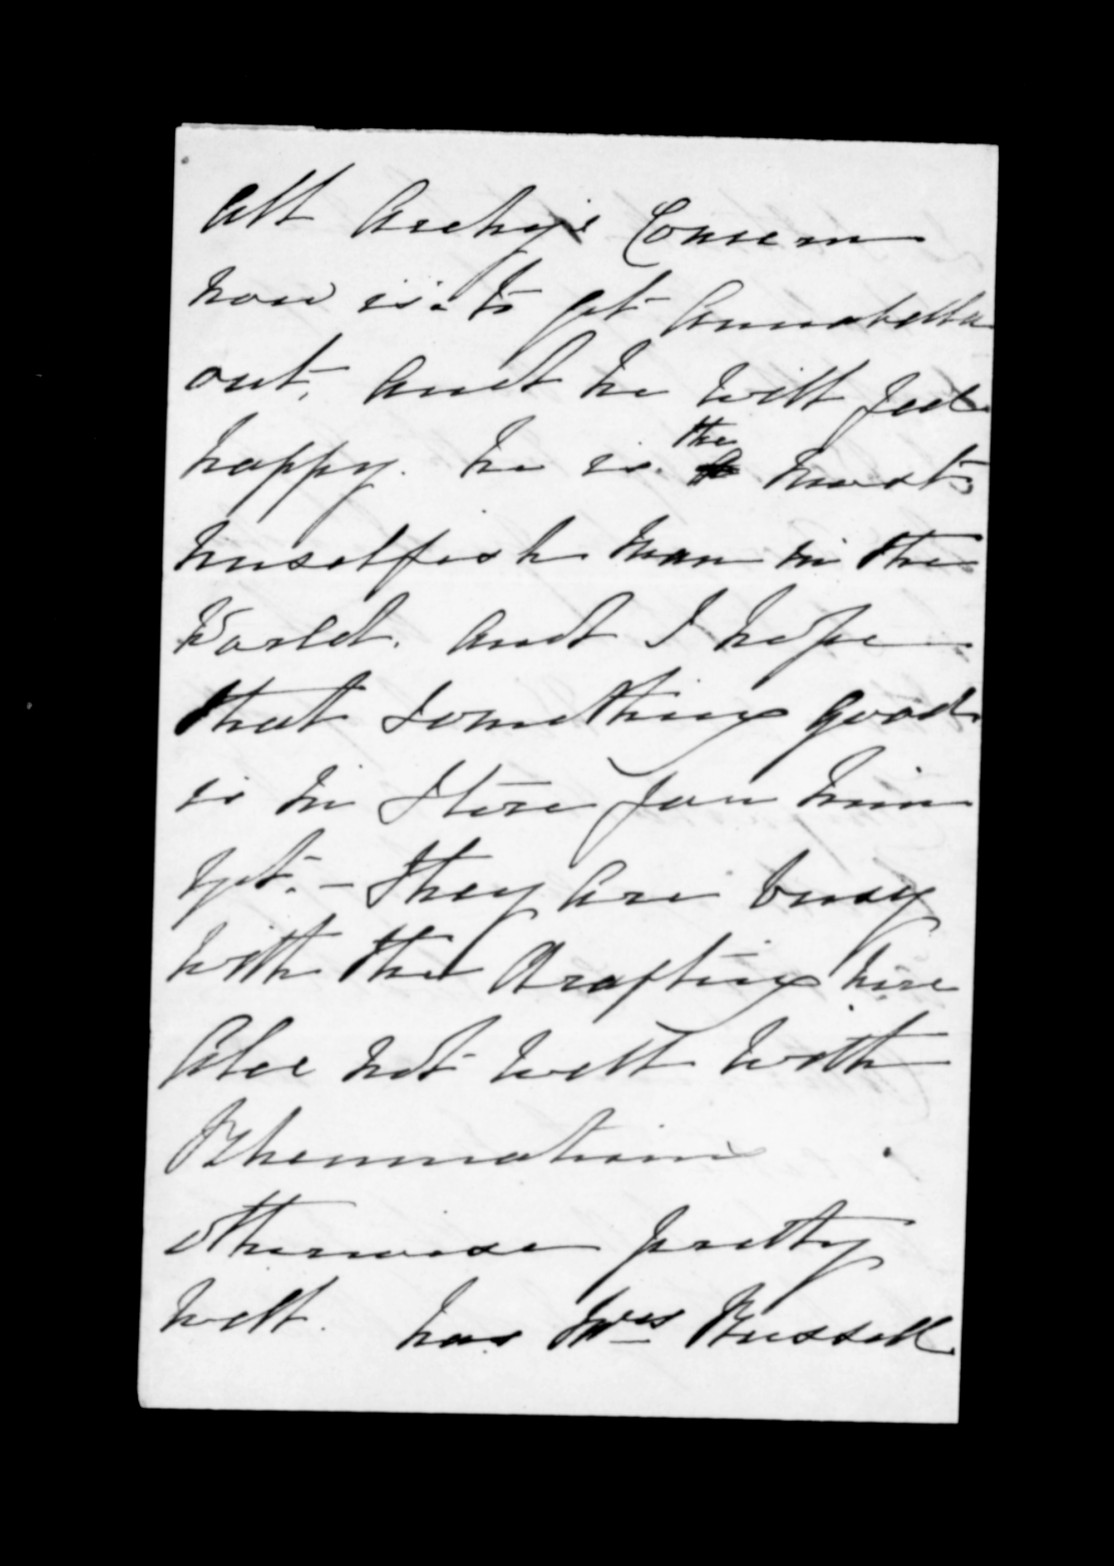 All Archy's Concern
now is to get Annabella
out, and he will feel
happy. he is the most
unselfish man in the
World. and I hope
that something good
is in Store for him
yet. - They are busy
with the drafting here
Alec not well with
Rheumatism
otherwise pretty
well. has Mrs Russell